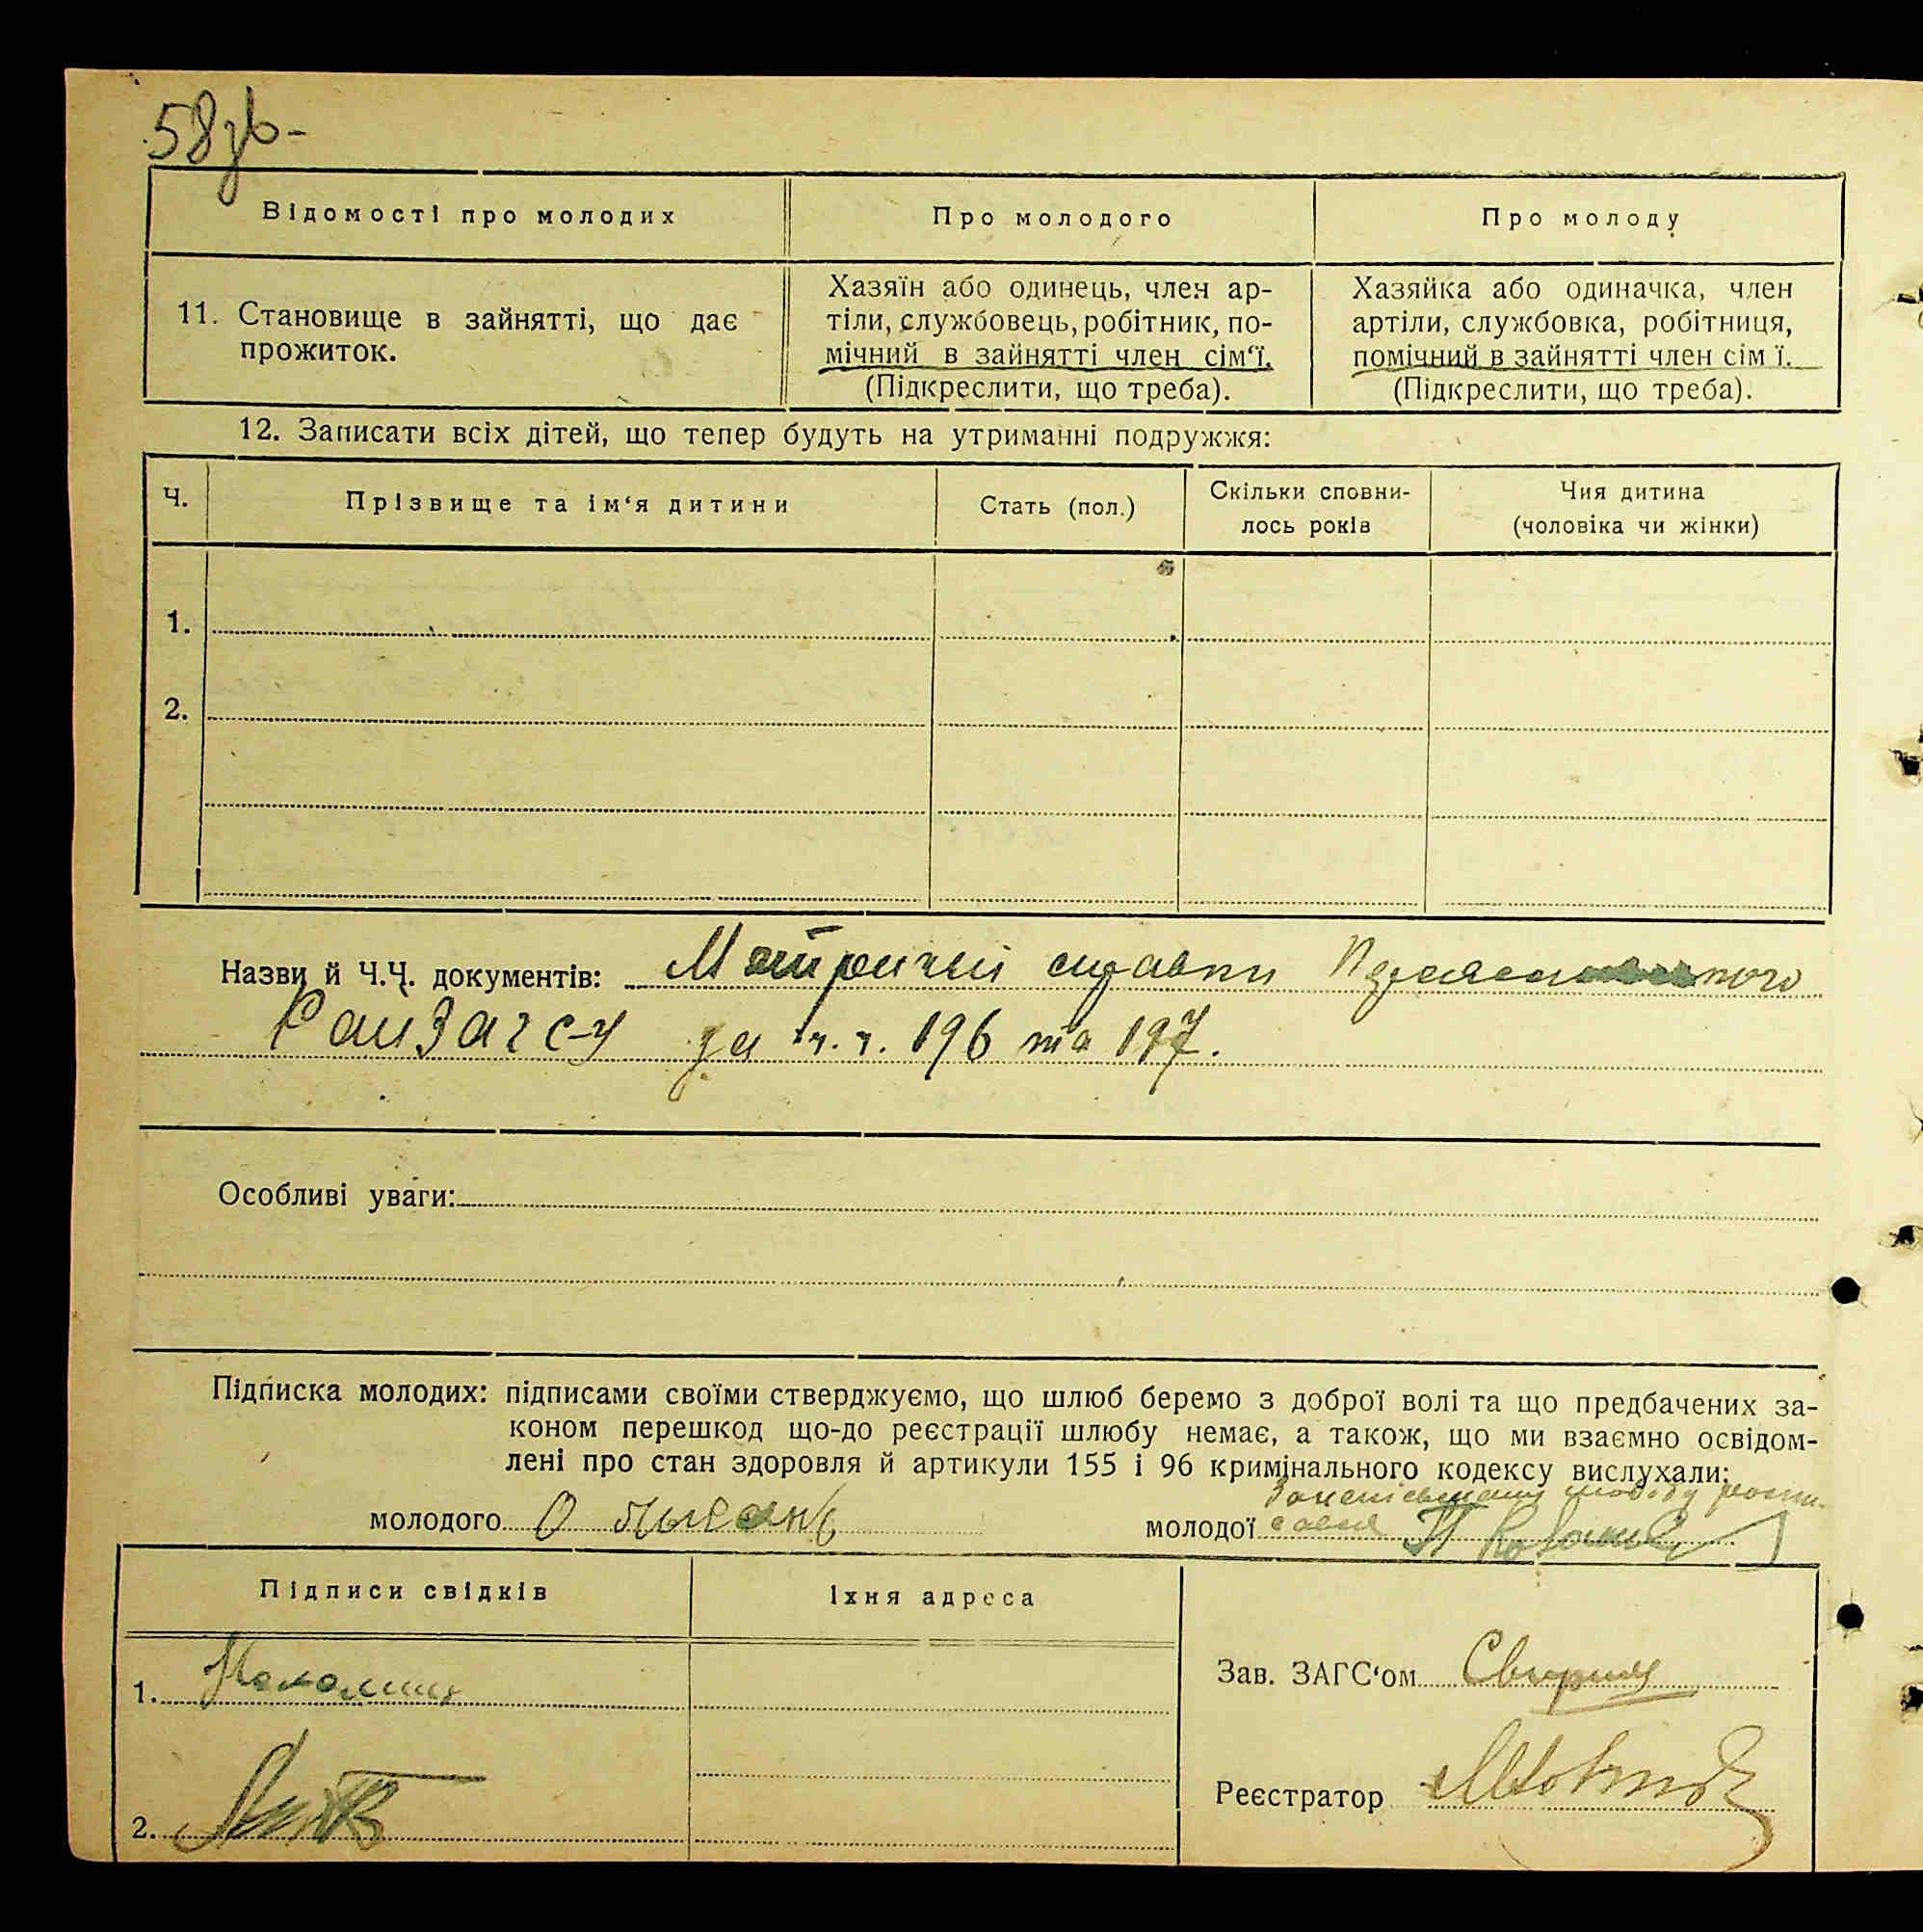 58зв-
Відомості про молодих
Про молодого
Про молоду
11. Становище в зайнятті, що дає
прожиток.
Хазяїн або одинець, член ар-
тіли, службовець, робітник, по-
мічний в зайнятті член сім‘ї.
(Підкреслити, що треба).
Хазяйка або одиначка, член
артіли, службовка, робітниця,
помічний в зайнятті член сім ї.
(Підкреслити, що треба).
12. Записати всіх дітей, що тепер будуть на утриманні подружжя:
Ч.
Прізвище та ім‘я дитини
Стать (пол.)
Скільки сповни-
лось років
Чия дитина
(чоловіка чи жінки)
1.
2.
Назви й Ч.Ч. документів: Метричні справки
РайЗагс-у за ч.ч. 196 та 197.
Особливі уваги:
Підписка молодих: підписами своїми стверджуємо, що шлюб беремо з доброї волі та що предбачених за-
коном перешкод що-до реєстрації шлюбу немає, а також, що ми взаємно освідом-
лені про стан здоровля й артикули 155 і 96 кримінального кодексу вислухали:
молодого
молодої
Підписи свідків
Їхня адреса
1.
2.
Зав. ЗАГС‘ом
Реєстратор